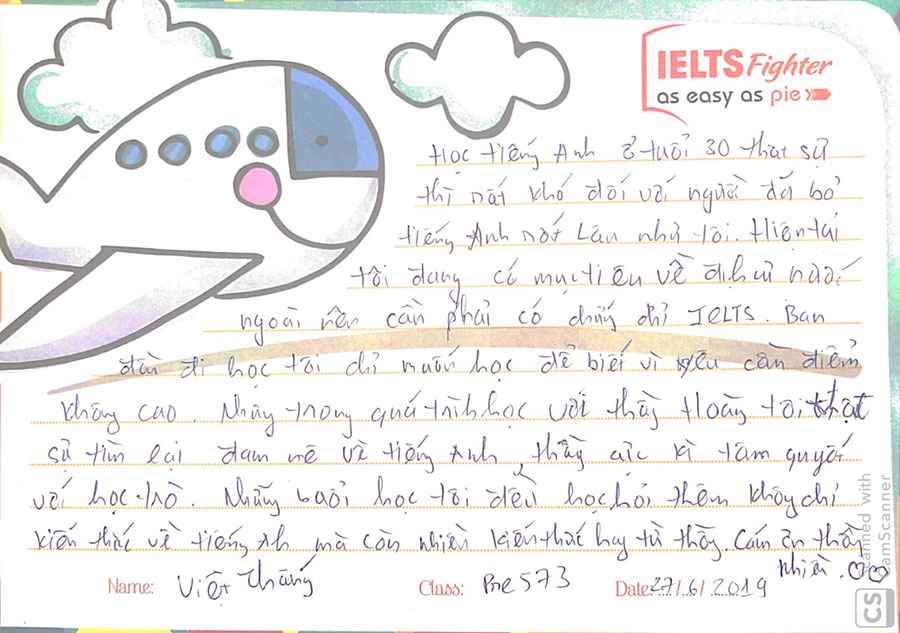 IELTS Fighter
as easy as pie
Học tiếng Anh ở tuổi 30 thật sự
thì rất khó đối với người đã bỏ
tiếng Anh rất lâu như tôi. Hiện tại
tôi đang có mục tiêu về định cư nước
ngoài nên cần phải có chứng chỉ IELTS. Ban
đầu đi học tôi chỉ muốn học để biết vì yêu cần điểm
không cao. Nhưng trong quá trình học với thầy Hoàng tôi thật
sự tìm lại đam mê về tiếng Anh, thầy cực kì tâm quyết
với học trò. Những buổi học tôi đều học hỏi thêm không chỉ
kiến thức về tiếng Anh mà còn nhiều kiến thức hay từ thầy. Cám ơn thầy
nhiều.
Name: Việt Thắng Class: Pre 573 Date: 27/6/2019
Scanned with
CamScanner
CS